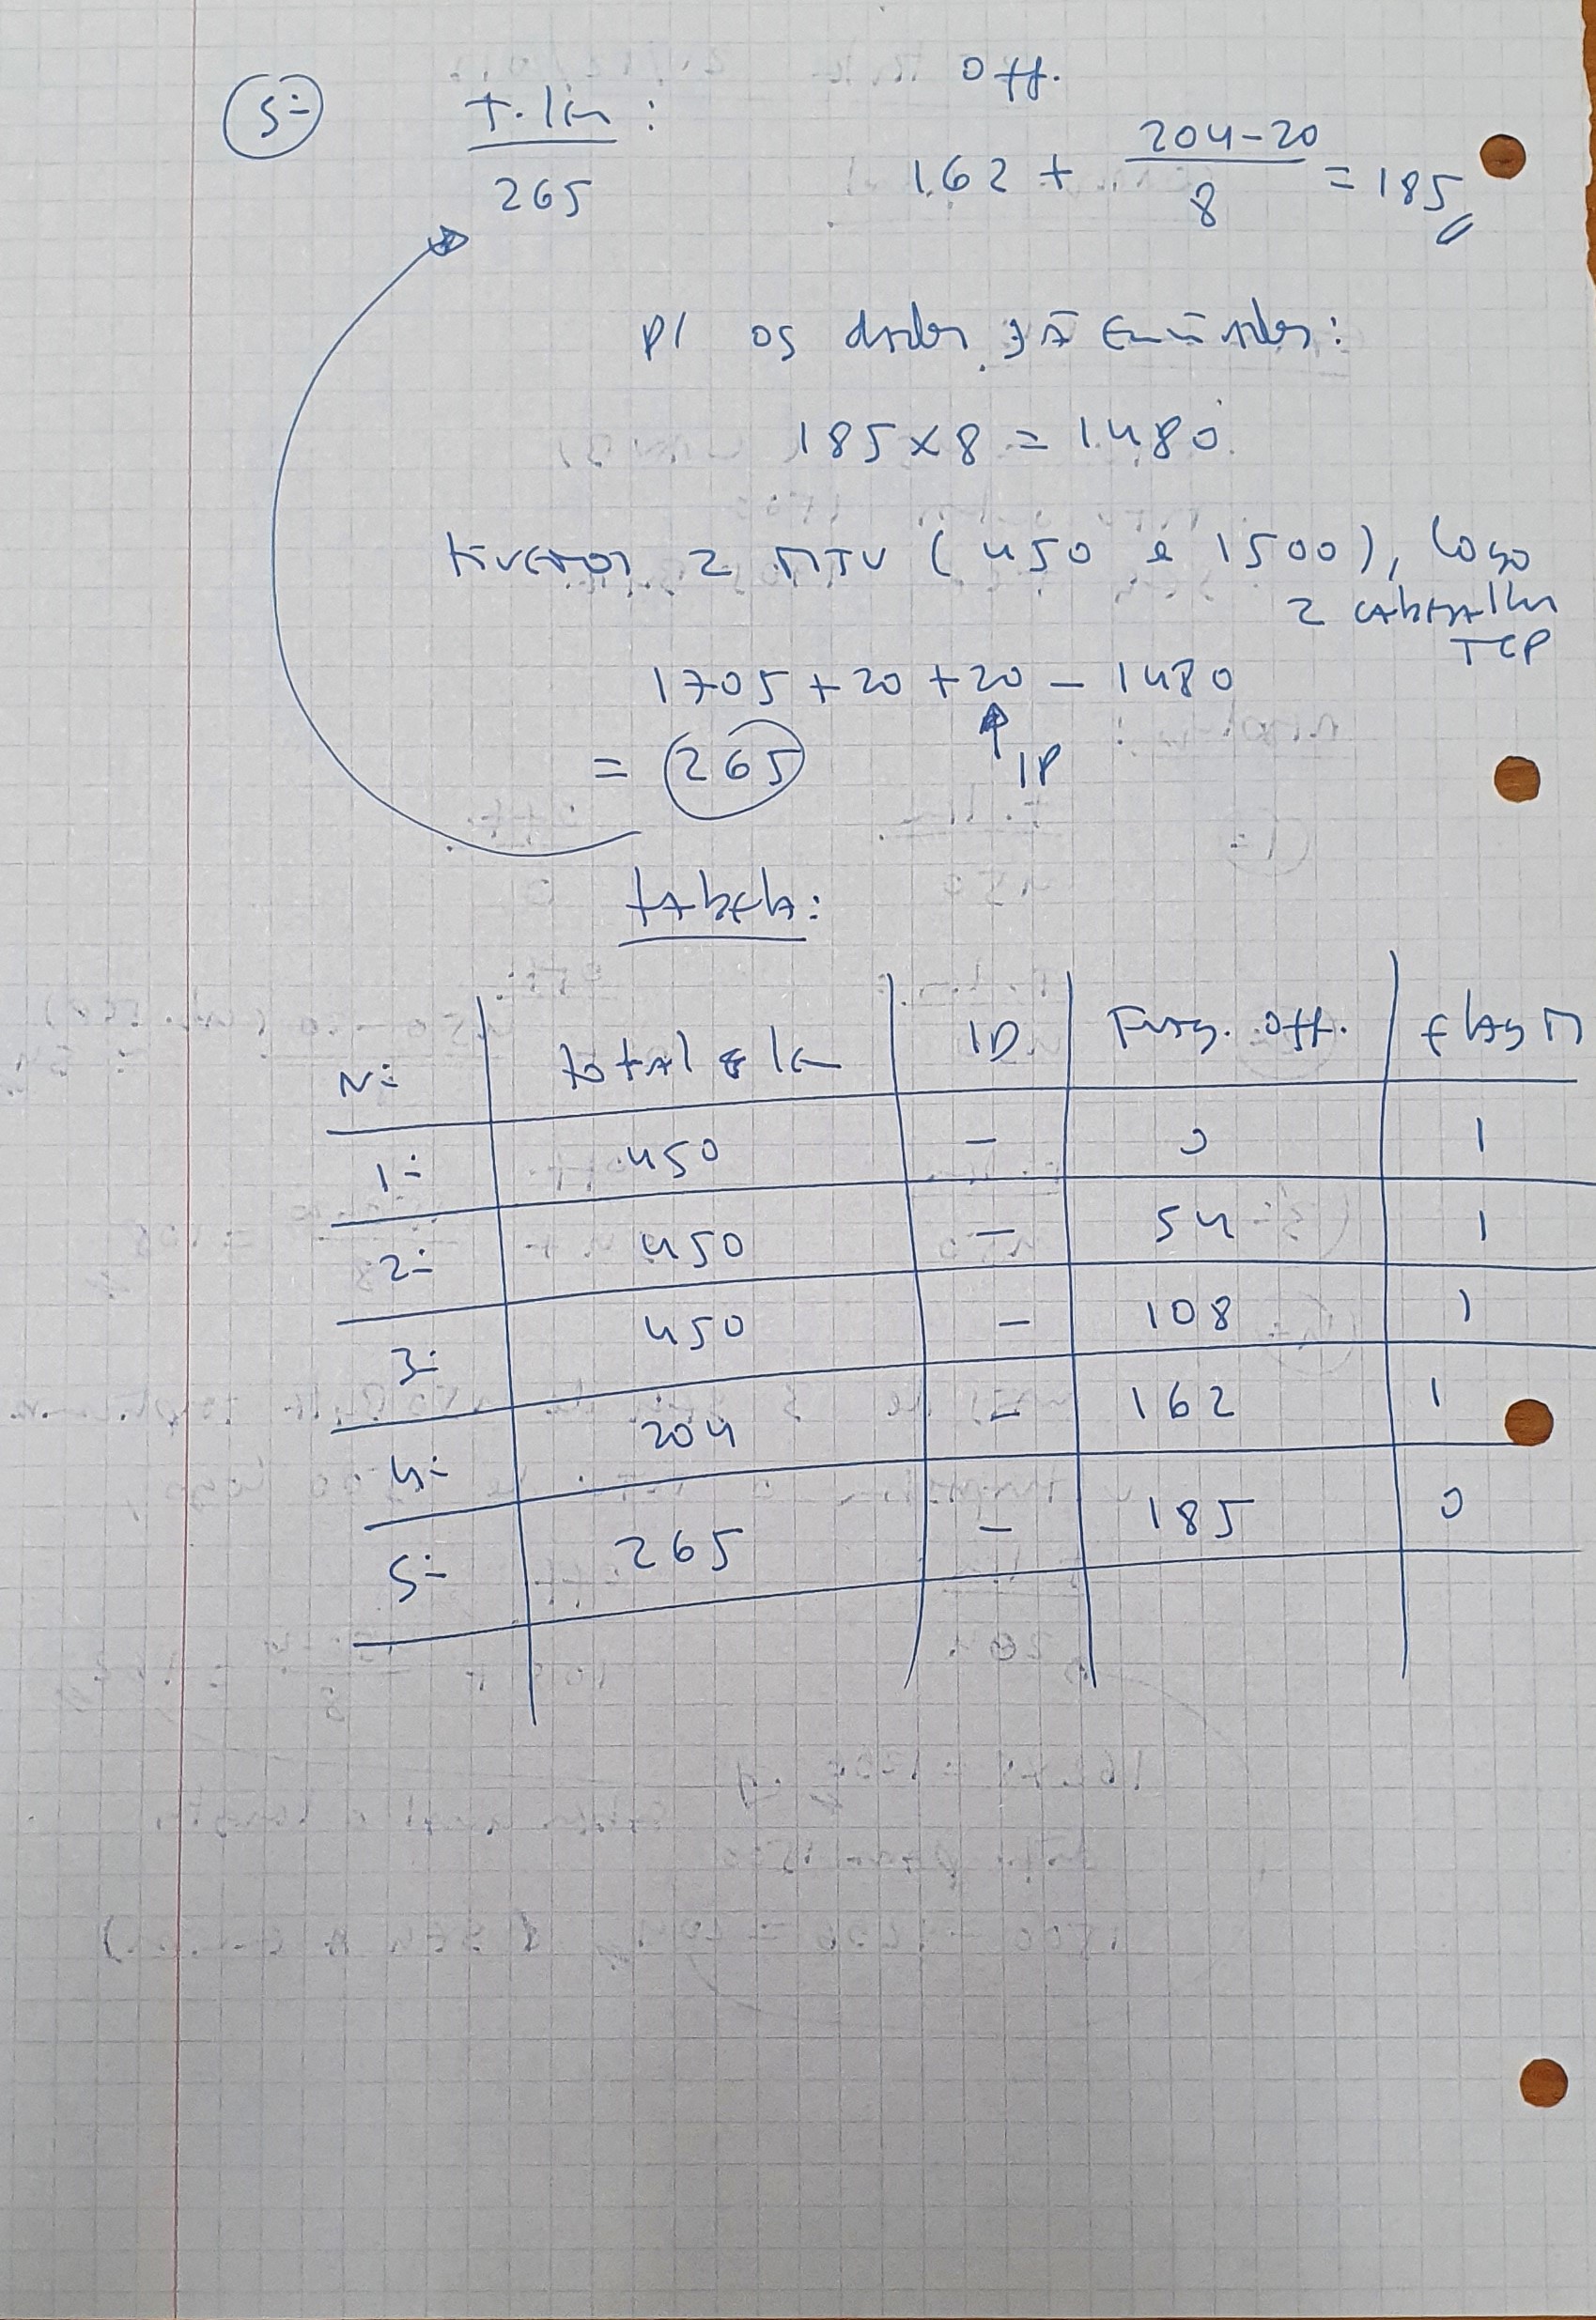 5º T. len : Off.
265 162 + (204-20)/8 = 185
p/ os dados já enviados:
185 x 8 = 1480
tivemos 2 MTU (450 e 1500), logo
2 cabeçalhos
TCP
1705 + 20 + 20 - 1480
IP
= 265
tabela:
Nº total len ID Frag. Off. flag M
1º 450 - 0 1
2º 450 - 54 1
3º 450 - 108 1
4º 204 - 162 1
5º 265 - 185 0